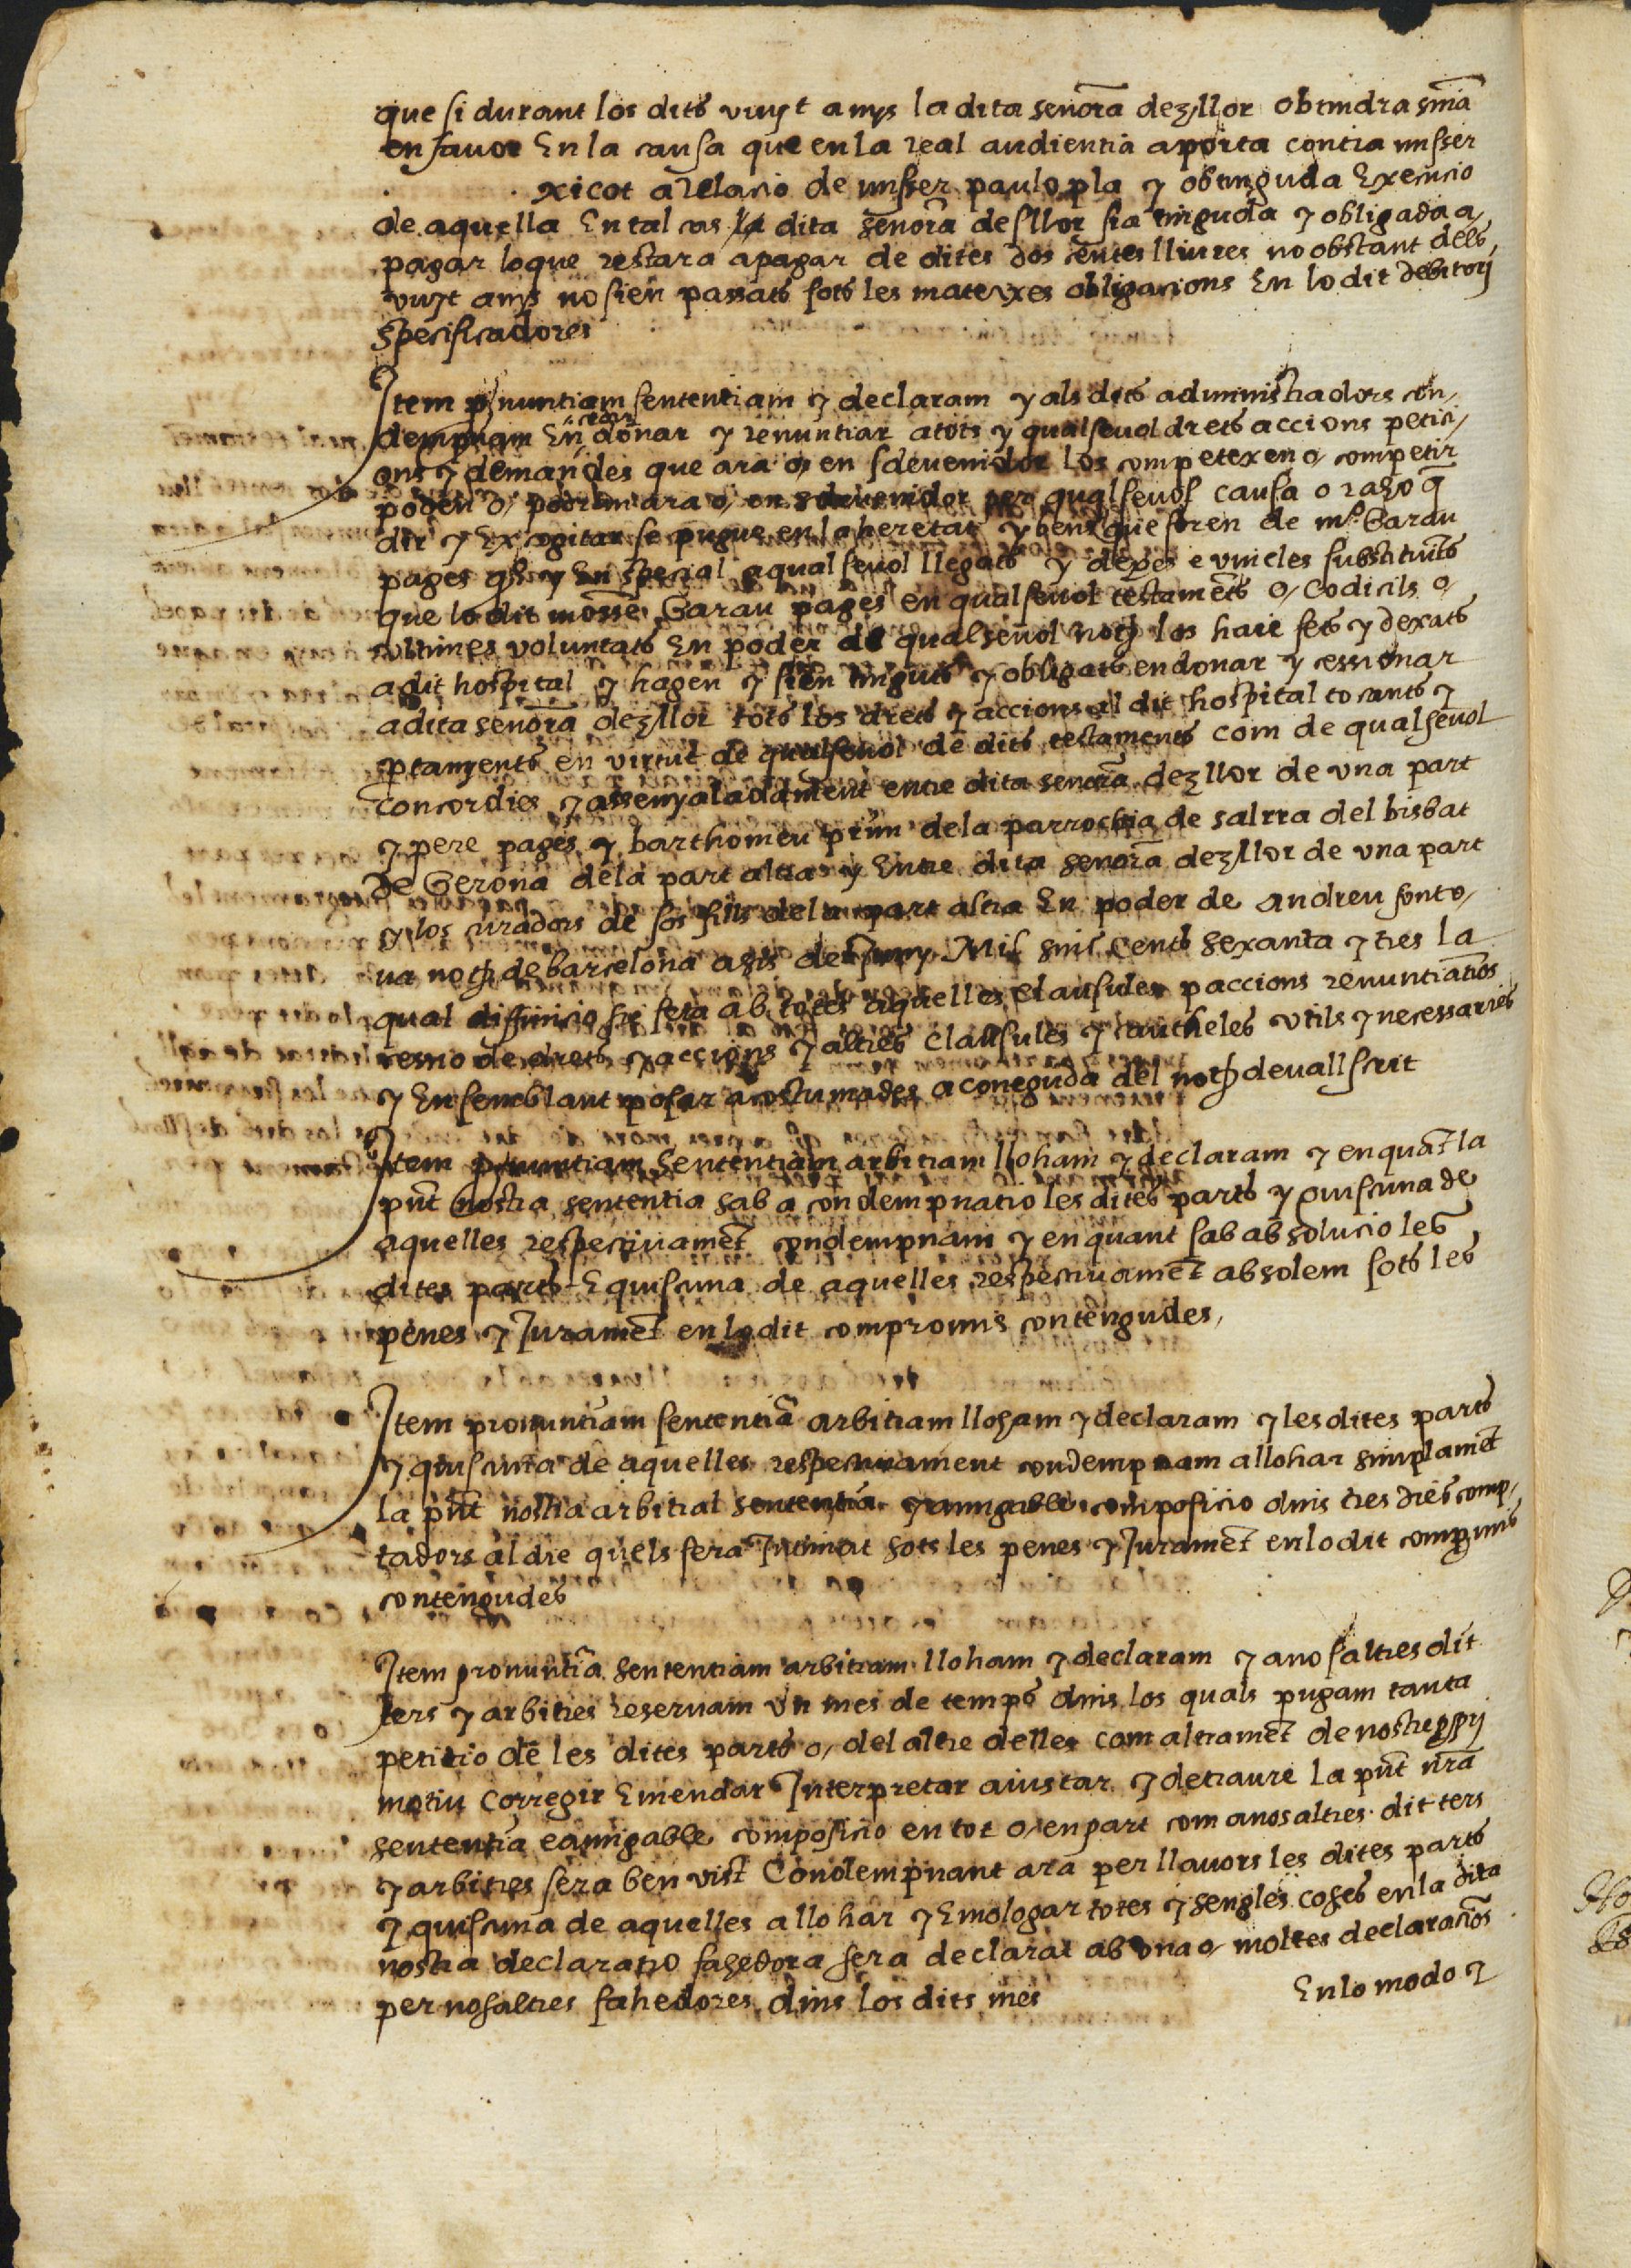 que si durant los dits vuyt anys la dita senora dezllor obtindra snia
en favor En la causa que en la real audientia aporta contra misser
xicot a relacio de misser paulo pla y obtinguda Execucio
de aquella En tal cas la dita senora desllor sia tinguda y obligada a
pagar lo que restara a pagar de dites dos centes lliures no obstant dels
vuyt anys no sien passats sots les matexxes obligacions En lo dit debitori
specificadores
Item pnuntiam sententiam y declaram y als dits administradors con-
dempnam En donar y renuntiar a tots y qualsevol drets accions petici-
ons y demandes que ara o en sdevenidor los competexen o competir
poden o, poden en ara o, en sdevenidor per qualsevol causa o raho q
dir y Excogitar se pugue en la heretat y bens que foren de mº Garau
pages qº y En special a qualsevol llegats y vincles substituits
que lo dit mosse Garau pages en qualsevol testamets o, Codicils o,
ultimes voluntats En poder de qualsevol not los haie fets y dexats
a dit hospital y hagen y sien tinguts y obligats en donar y cessionar
a dita senora dezllor tots los drets y accions al dit hospital tocants y
ptanyents en virtut de qualsevol de dits testaments com de qualsevol
concordies y assenyaladament entre dita senora dezllor de una part
y pere pages y barthomeu prim de la parrochia de salrra del bisbat
de Gerona de la part altra y Entre dita senora dezllor de una part
y los curadors de sos fills de la part altra En poder de Andreu fonto-
va not de barcelona a sis de juny Mil sinc Cents sexanta y tres la
qual diffinicio he feta ab totes aquelles Clausules paccions renuntiatios
cessio de drets y accions y altres Clausules y cautheles utils y necessaries
y En semblant posar acostumades a coneguda del not devall scrit
Item pnuntiam Sententiam arbitram lloham y declaram y en quat la
pnt nostra sententia sab a condempnatio les dites parts y quiscuna de
aquelles respectivamet condempnam y en quant sab absolucio les
dites parts E quiscuna de aquelles respectivamet absolem sots les
penes y Juramet en lo dit compromis contengudes,
Item pronuntiam sententia arbitram lloham y declaram y les dites parts
y quiscuna de aquelles respectivament condempnam a llohar simplamet
la pnt nostra arbitral sententia y amigable composicio dins tres dies comp-
tadors al die quels sera Intimat sots les penes y Juramet en lo dit compmis
contengudes
Item pronuntia sententiam arbitram lloham y declaram y a nosaltres dit
ters y arbitres reservam un mes de temps dins los quals pugam tanta
petitio de les dites parts o, del altre delles com altramet de nostre ppri
motiu Corregir Emendar Interpretar aiustar y detraure la pnt nra
sententia e amigable composicio en tot o, en part com a nosaltres dit ters
y arbitres sera ben vist Condempnant ara per llavors les dites parts
y quiscuna de aquelles a llohar y Emologar totes y sengles coses en la dita
nostra declaratio fahedora sera declarat ab una o, moltes declaratios
per nosaltres fahedores dins los dits mes
En lo modo y